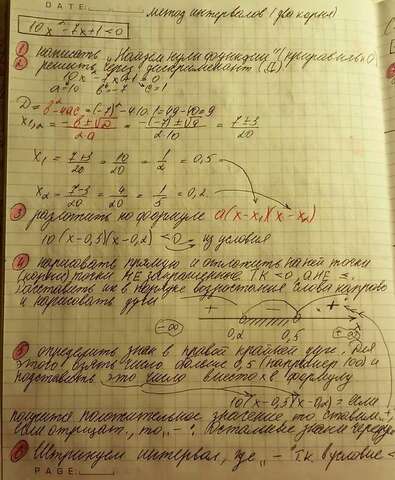 DATE:
метод интервалов (два корня)
10x² - 7x + 1 < 0
1 написать „Находим нули функции" (приравнять к 0)
2 решить через дискриминант (Д)
10x² - 7x + 1 = 0
a=10 b=-7 c=1
D = b² - 4ac = (-7)² - 4·10·1 = 49 - 40 = 9
x₁,₂ = -b ± √D / 2a = -(-7) ± √9 / 2·10 = 7±3 / 20
x₁ = 7+3 / 20 = 10 / 20 = 1 / 2 = 0,5
x₂ = 7-3 / 20 = 4 / 20 = 1 / 5 = 0,2
3 разложить по формуле a(x-x₁)(x-x₂)
10(x-0,5)(x-0,2) < 0 из условия
4 нарисовать прямую и отложить на ней точки
(корни) точки НЕ закрашенные т.к <0, а НЕ ≤.
Расставить их в порядке возрастания слева направо
и нарисовать дуги
+ - +
-∞ 0,2 0,5 +∞
5 определить знак в правой крайней дуге. Для
этого взять число больше 0,5 (например 100) и
подставить это число вместо x в формулу
10(x-0,5)(x-0,2) = если
получится положительное значение то ставим „+",
если отрицат., то „-". Остальные знаки череду
6 Штрихуем интервал, где „-" т.к в условие <
PAGE: